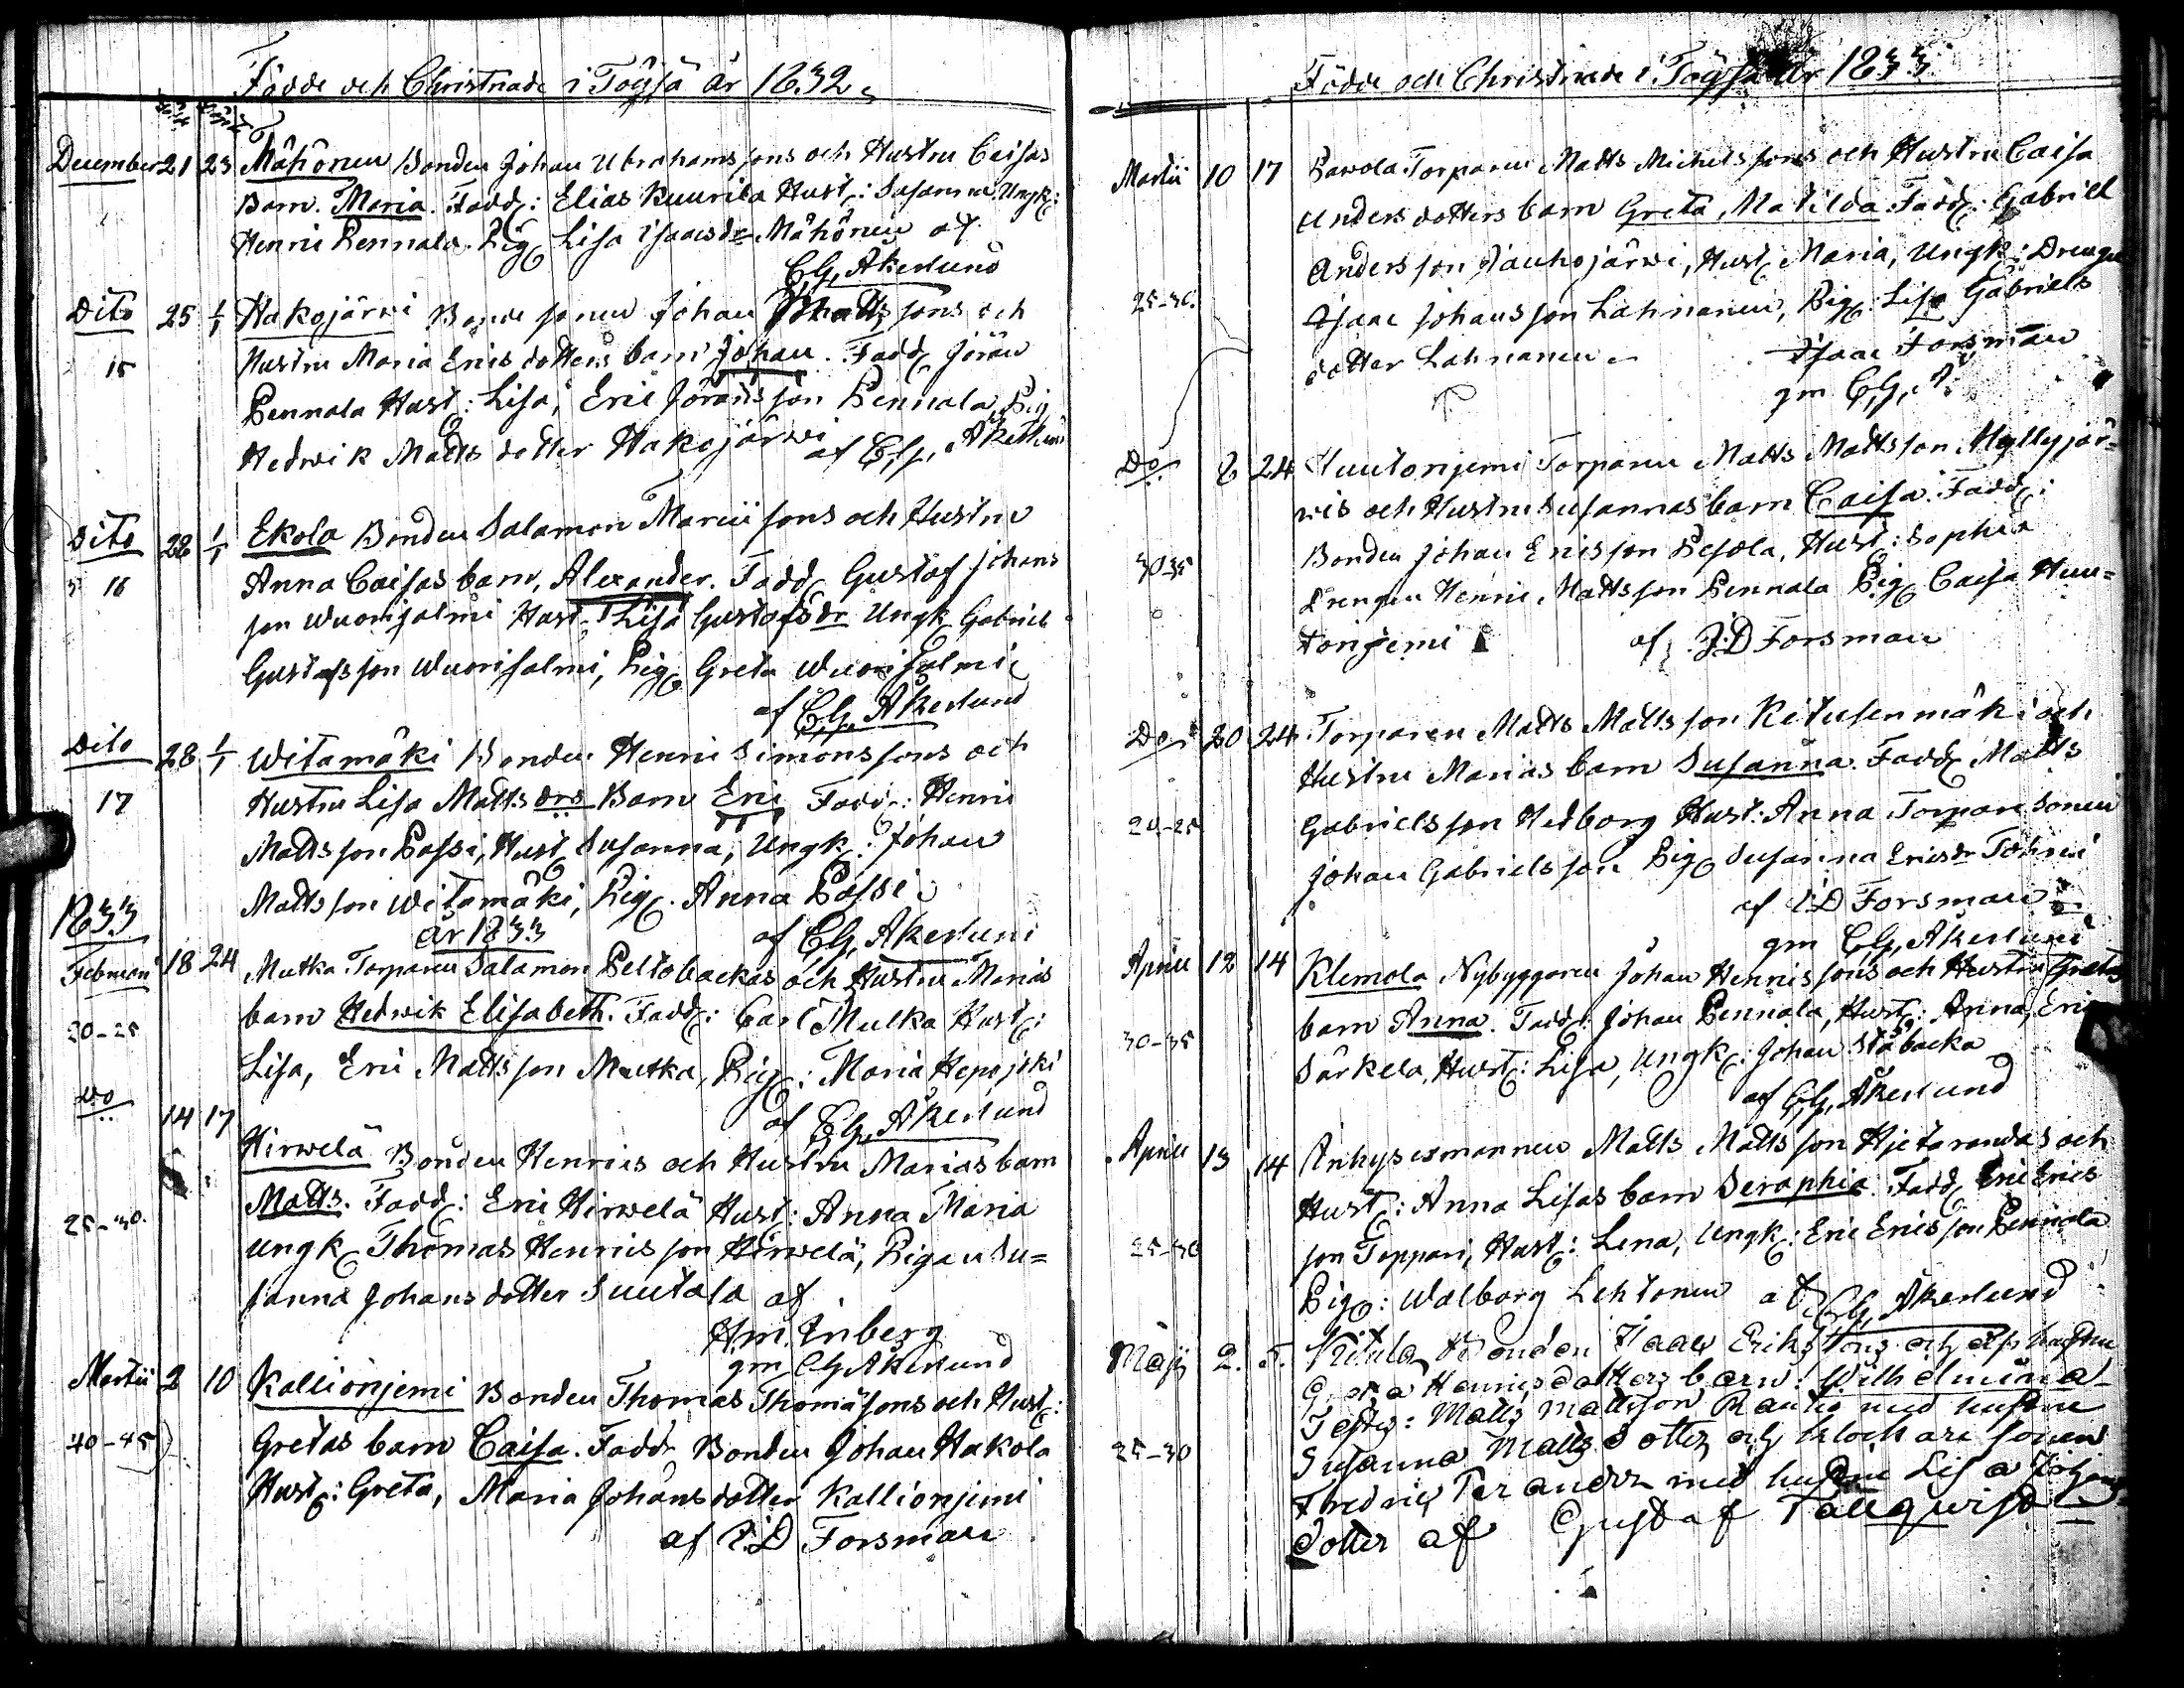 Födde och Christnade i Töysä år 1832.
December 21 23 Mähönen Bonden Johan Abrahams sons och Hustru Caisas
Barn. Maria. Fadd: Elias Kuurila Hust: Susanna. Ungk:
Henric Pennala. Pig Lisa Isaacsdr Mähönen af
C.G. Åkerlund
Dito 25 1/1 Hakojärvi Bonde sonen Johan Matts sons och
15 Hustru Maria Erics dotters barn Johan. Fadd Jöran
Pennala Hust: Lisa, Eric Jöransson Pennala, Pig
Hedwik Matts dotter Hakojärwi af C.G. Åkerlund
Dito 28 1/1 Ekola Bonden Salamon Marcii sons och Hustru
16 Anna Caisas barn, Alexander. Fadd Gustaf Johans
son Wuorisalmi Hust. Lisa Gustafsdr Ungk Gabriel
Gustafsson Wuorisalmi, Pig Greta Wuorisalmi
af C.G. Åkerlund
Dito 28 1/1 Witamäki Bonden Henric Simonssons och
17 Hustru Lisa Matts drs Barn Eric Fadd: Henric
Mattsson Possi, Hust Susanna, Ungk: Johan
Mattsson Witamäki, Pig. Anna Possi
1833 år 1833 af C.G. Åkerlund
Februari 18 24 Mutka Torparen Salamon Peltobackas och Hustru Marias
barn Hedwik Elisabeth. Fadd: Carl Mutka Hust:
20-25
Lisa, Eric Mattsson Mutka, Pig: Maria Hepojki
af C.G. Åkerlund
Do 14 17 Hirwelä Bonden Henrics och Hustru Marias barn
Matts. Fadd: Eric Hirwelä Hust: Anna Maria
25-30. Ungk Thomas Henricsson Hirwelä, Pigan Su=
sanna Johans dotter Suutala af
H.m. Enberg
gm C.G. Åkerlund
Martii 2 10 Kallionjemi Bonden Thomas Thomäsons och Hust:
40-45 Gretas barn Caisa. Fadd Bonden Johan Hakola
Hust: Greta, Maria Johans dotter Kallionjemi
af I.D Forsman
Födde och Christnade i Töysä år 1833
Martii 10 17 Pawola Torparen Matts Michelssons och Hustru Caisa
Anders dotters barn Greta, Matilda Fadd: Gabriel
Andersson Jauhojärwi, Hust Maria, Ungk: Drengen
25-30. Isaac Johansson Lahnanen, Pig: Lisa Gabriels
dotter Lahnanen. Isaac Forsman
gm C.G. Å.
Do 6 24 Huutonjemi Torparen Matts Mattsson Myllyjär=
wis och Hustru Susannas barn Caisa. Fadd:
30-35 Bonden Johan Ericsson Pesola, Hust: Sophia
Drengen Henric Mattsson Pennala Pig Caisa Huu=
tonjemi af I.D Forsman
Do 20 24 Torparen Matts Mattsson Kitusenmäki och
Hustru Marias barn Susanna. Fadd Matts
20-25 Gabrielsson Hedborg Hust: Anna Torpare sonen
Johan Gabrielsson Pig Susanna Ericsdr Tohni
af I.D Forsman
gm C.G. Åkerlund
April 12 14 Klemola Nybyggaren Johan Henricssons och Hustru Gretas
30-35 barn Anna. Fadd: Johan Pennala, Hust: Anna, Eric
Särkela, Hust: Lisa, Ungk: Johan Stäbacka
af C.G. Åkerlund
April 13 14 Inhysesmannen Matts Mattsson Hjetarandas och
Hust: Anna Lisas barn Seraphia. Fadd Eric Erics
25-30 son Toppari, Hust: Lena, Ungk: Eric Ericsson Pennala
Pig: Walborg Lehtonen af C.G. Åkerlund
Maji 2. 5. Kitula Bonden Isaac Eriks Sons och dess hustru
Greta Henricsdotters barn: Wilhelmina
Testes: Matts Mattsson Rautio med hustru
25-30 Susanna Matts dotter och klockare sonen
Fredric Perander med hustru Lisa Johans
dotter af Gustaf Tallqvist